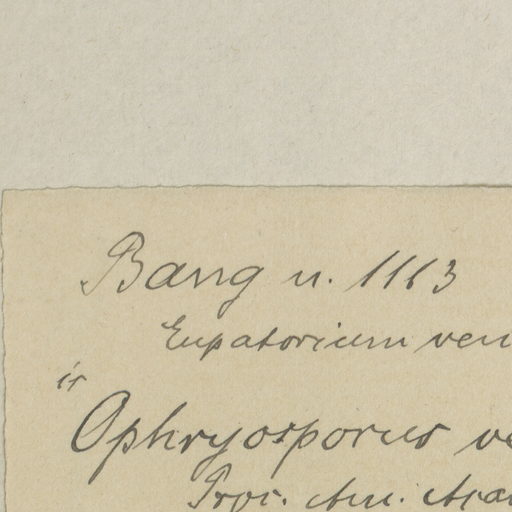 Bang n. 1113
Eupatorium ven
is
Ophryosporus ve
Proc. Am. Acad